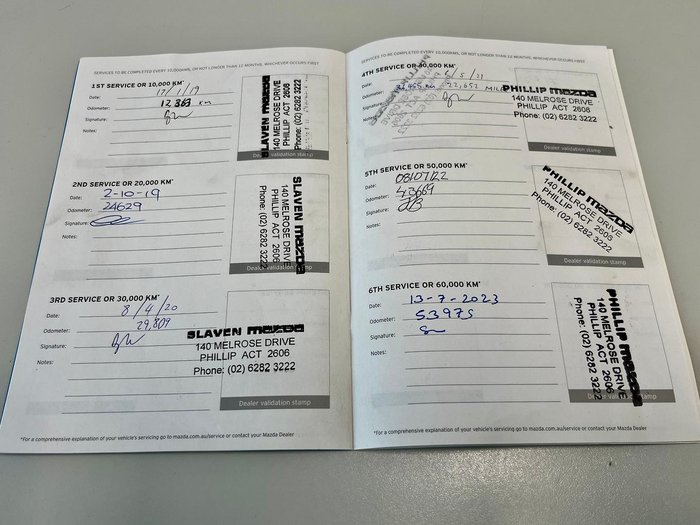 SERVICES TO BE COMPLETED EVERY 10,000KMS, OR NOT LONGER THAN 12 MONTHS, WHICHEVER OCCURS FIRST
1ST SERVICE OR 10,000 KM*
Date: 17/1/19
Odometer: km
Signature:
Notes:
SLAVEN mazda
140 MELROSE DRIVE
PHILLIP ACT 2606
Phone: (02) 6282 3222
Dealer validation stamp
2ND SERVICE OR 20,000 KM*
Date: 2-10-19
Odometer: 24629
Signature:
Notes:
SLAVEN mazda
140 MELROSE DRIVE
PHILLIP ACT 2606
Phone: (02) 6282 3222
Dealer validation stamp
3RD SERVICE OR 30,000 KM*
Date: 8/4/20
Odometer: 29,809
Signature:
Notes:
SLAVEN mazda
140 MELROSE DRIVE
PHILLIP ACT 2606
Phone: (02) 6282 3222
Dealer validation stamp
*For a comprehensive explanation of your vehicle's servicing go to mazda.com.au/service or contact your Mazda Dealer
SERVICES TO BE COMPLETED EVERY 10,000KMS, OR NOT LONGER THAN 12 MONTHS, WHICHEVER OCCURS FIRST
4TH SERVICE OR 40,000 KM*
Date: /5/21
Odometer: km 22,652 MILE
Signature:
Notes:
PHILLIP mazda
140 MELROSE DRIVE
PHILLIP ACT 2606
Phone: (02) 6282 3222
Dealer validation stamp
5TH SERVICE OR 50,000 KM*
Date: 08/07/22
Odometer: 43669
Signature:
Notes:
PHILLIP mazda
140 MELROSE DRIVE
PHILLIP ACT 2606
Phone: (02) 6282 3222
Dealer validation stamp
6TH SERVICE OR 60,000 KM*
Date: 13-7-2023
Odometer: 53975
Signature:
Notes:
PHILLIP mazda
140 MELROSE DRIVE
PHILLIP ACT 2606
Phone: (02) 6282 3222
Dealer validation stamp
*For a comprehensive explanation of your vehicle's servicing go to mazda.com.au/service or contact your Mazda Dealer